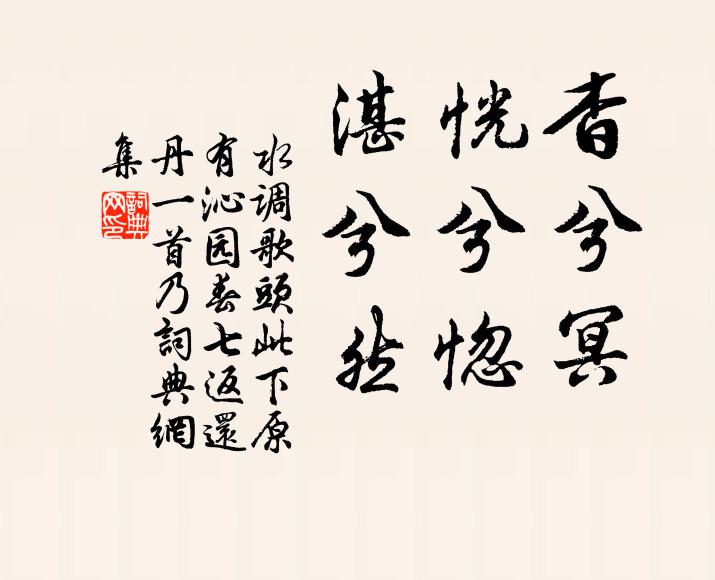 杳兮冥
恍兮惚
湛兮然
水调歌頭此下原
有沁园春七返還
丹一首乃詞典網
集
詞典
网印